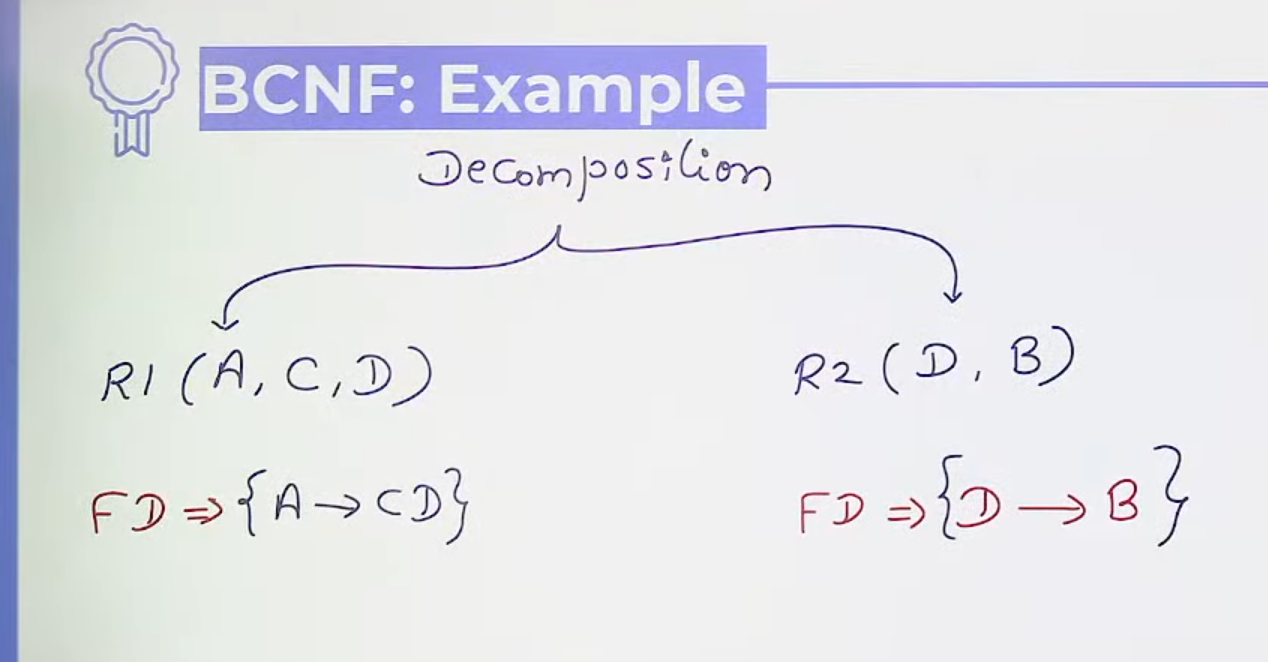 BCNF: Example
Decomposition
R1 (A, C, D)
R2 (D, B)
FD ⇒ {A → CD}
FD ⇒ {D → B}